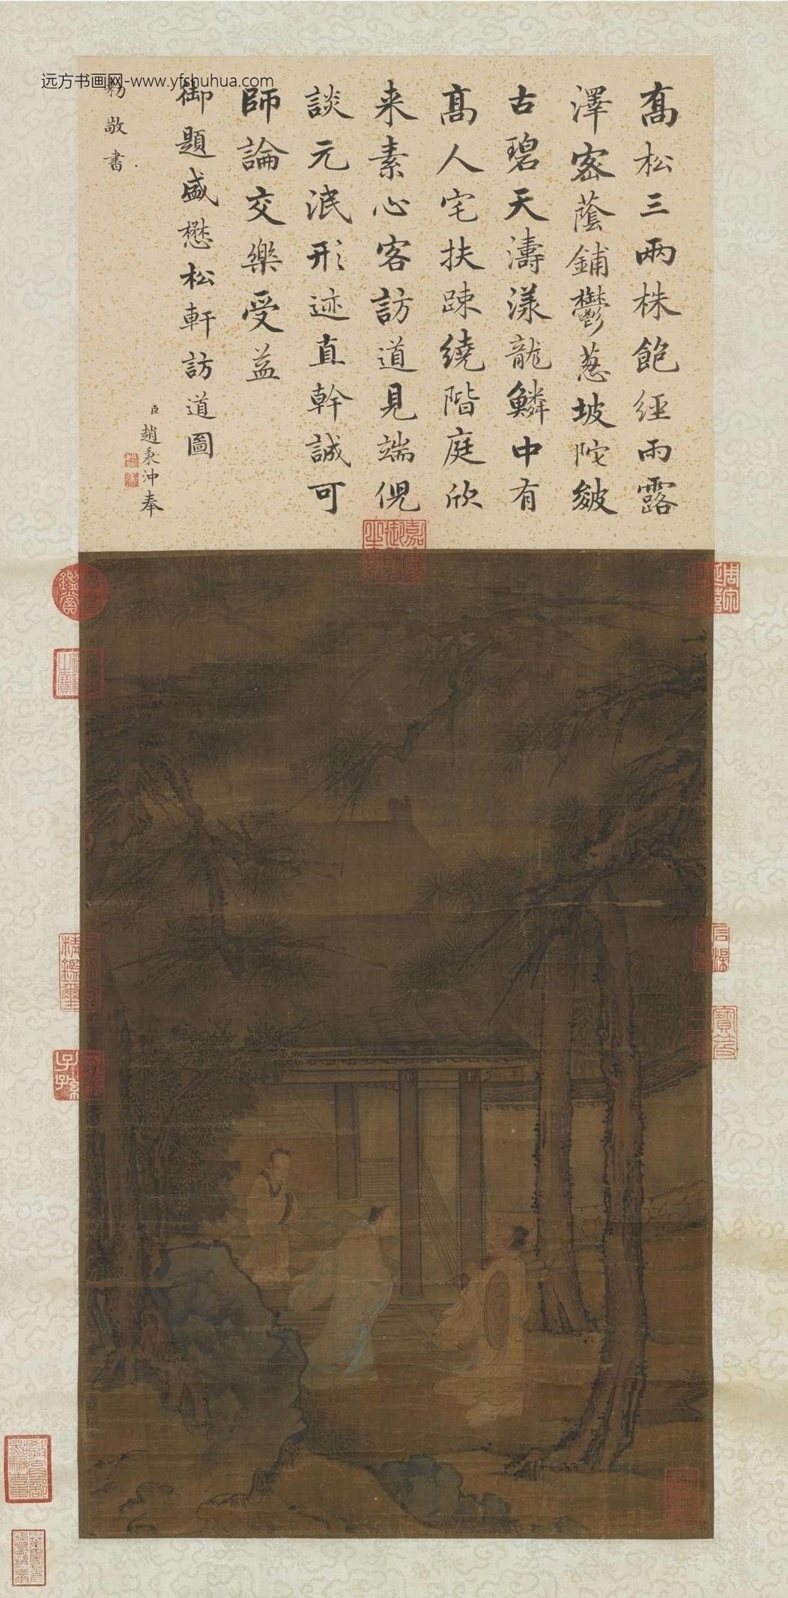 远方书画网-www.yfshuhua.com
髙松三兩株飽經雨露
澤宻蔭鋪鬱蔥坡陀皴
古碧天濤漾龍鱗中有
髙人宅扶踈繞階庭欣
来素心客訪道見端倪
談元泯形迹直幹誠可
師論交樂受益
御題盛懋松軒訪道圖
臣趙秉沖奉
勅敬書